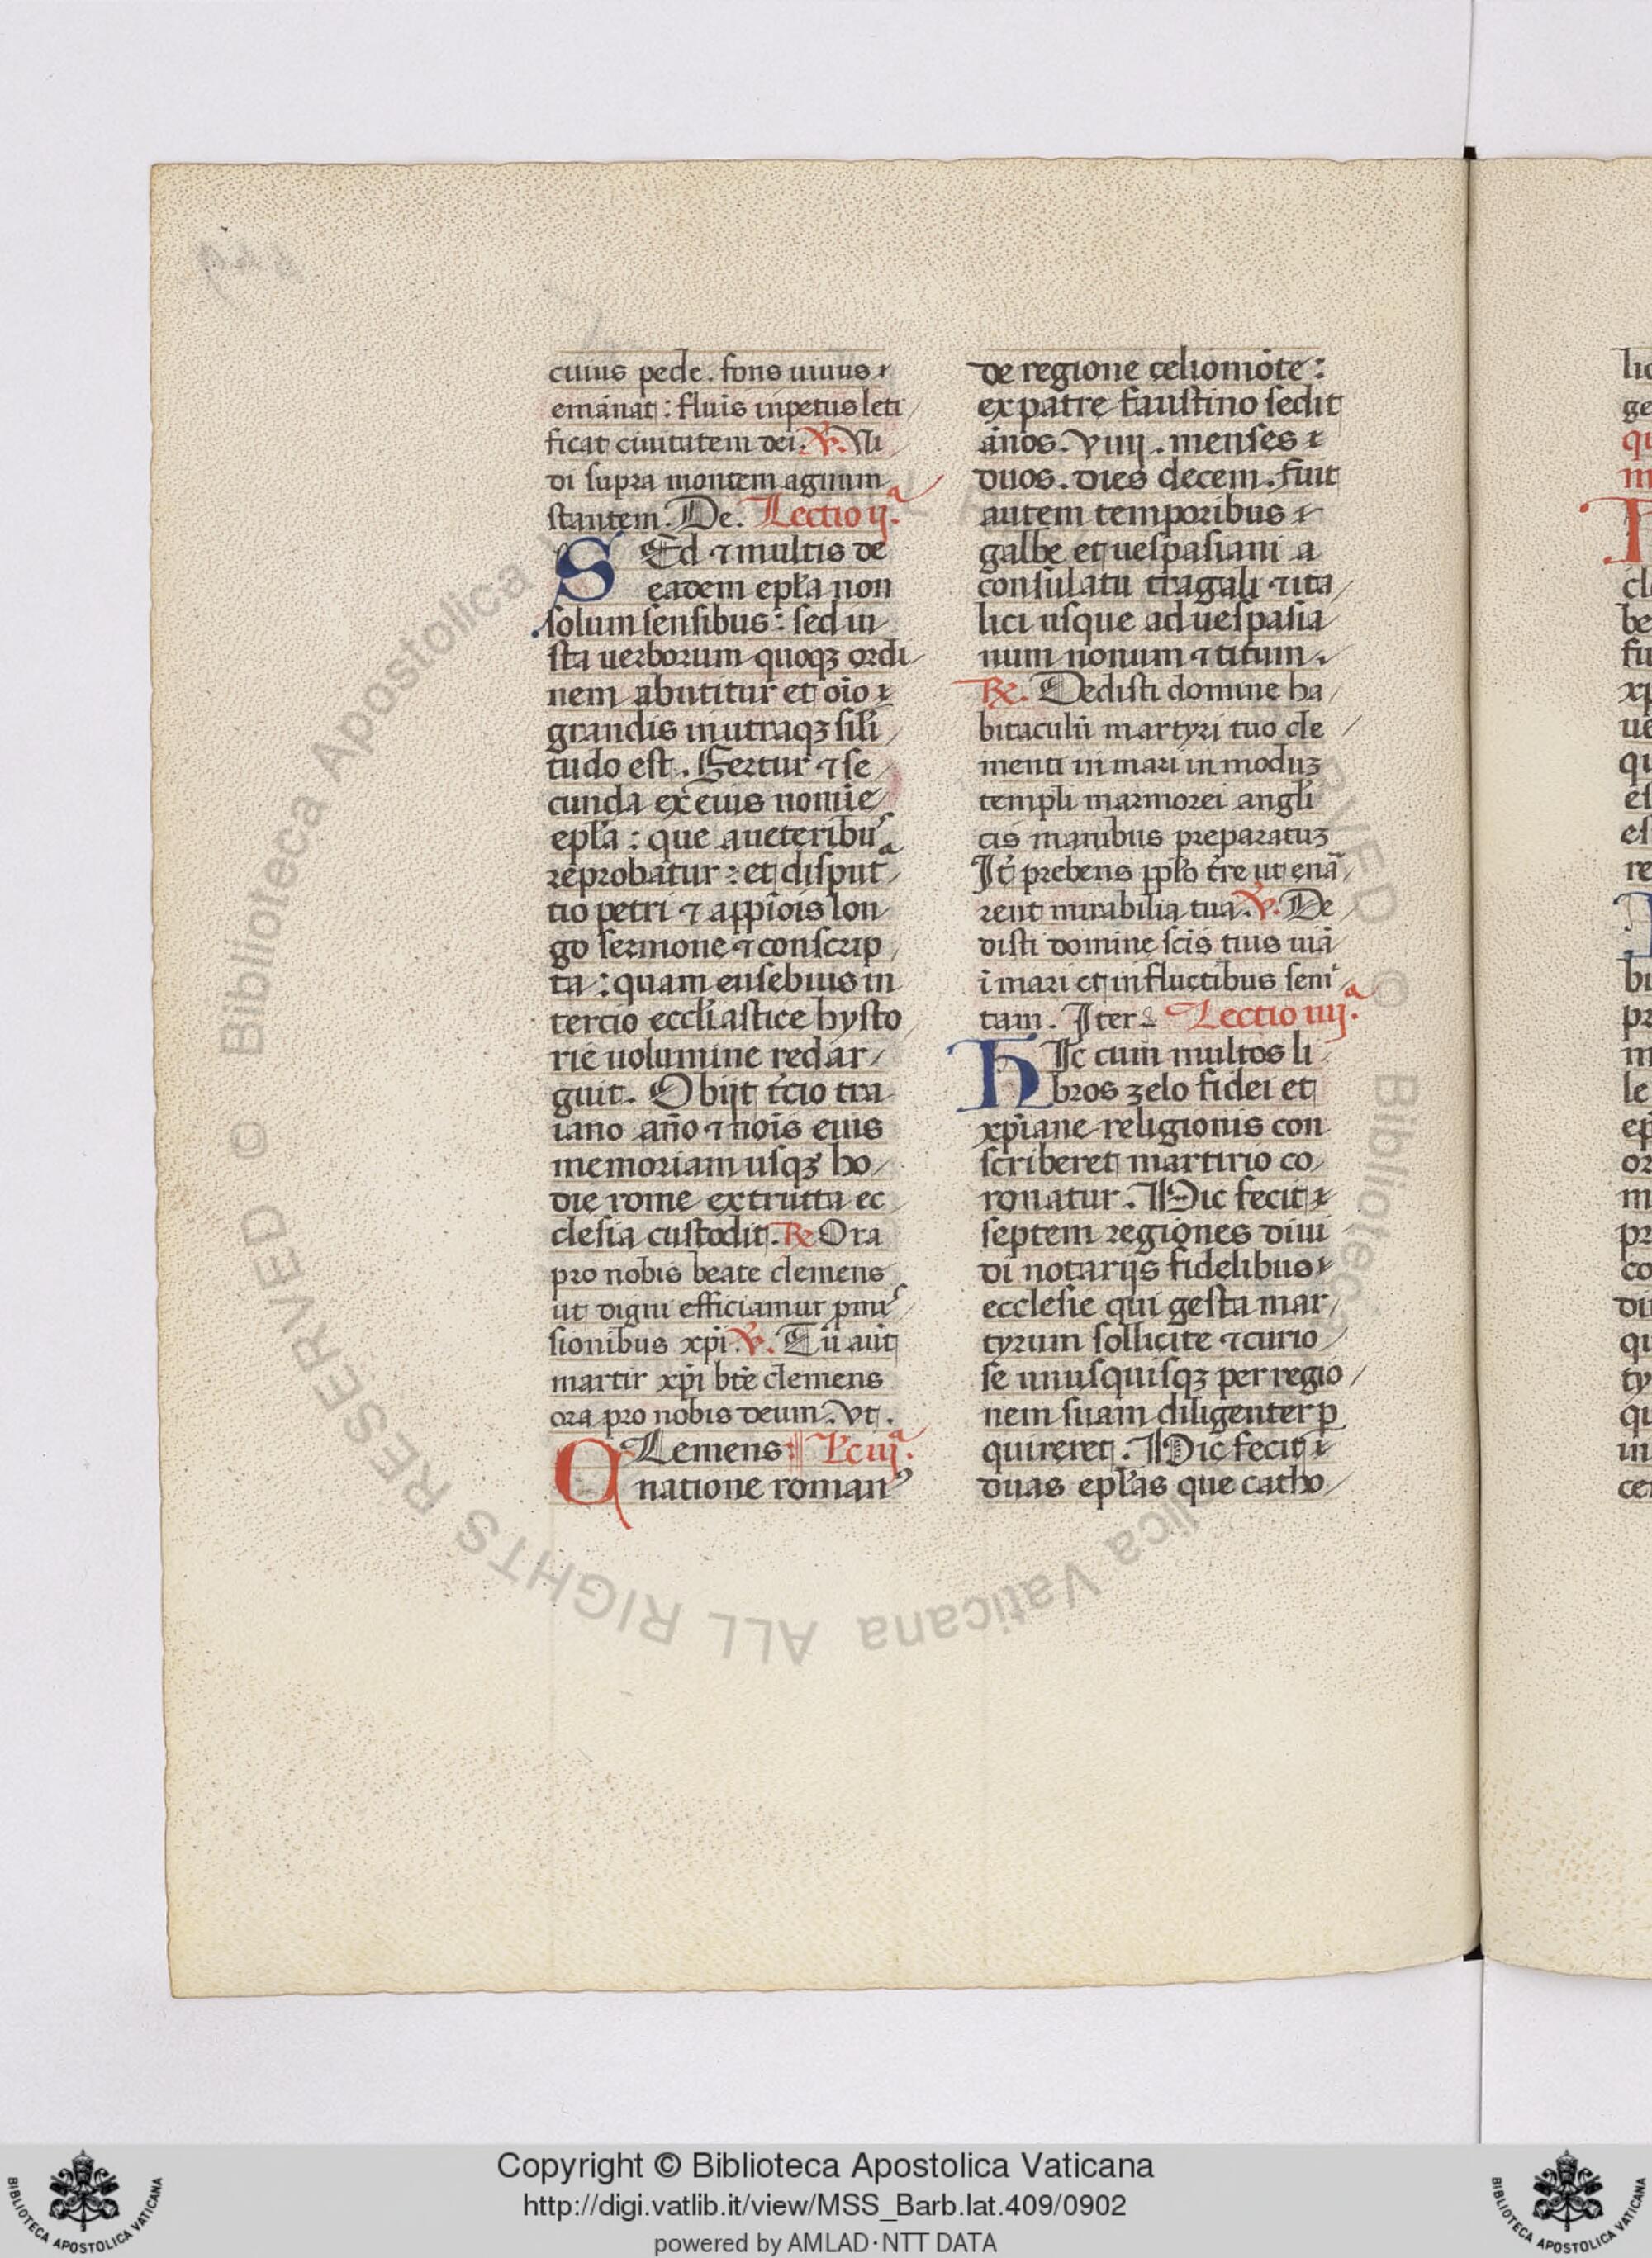 cuius pede. fons uiuus
emanat: fluis inpetus leti
ficat ciuitatem dei. V. Vi
di supra montem agnum
stantem. De. Lectio ija.
SEd ⁊ multis de
eadem epła non
solum sensibus: sed iu
sta uerborum quoqꝫ ordi
nem abutitur et oīo
grandis in utraqꝫ sili
tudo est. Fertur ⁊ se
cunda ex eius nomīe
epła: que aueteribus
reprobatur: et disputa
tio petri ⁊ appiōis lon
go sermone ⁊ conscrip
ta: quam eusebius in
tercio eccliastice hysto
rie uolumine redar
guit. Obijt tcio tra
iano año ⁊ nois eius
memoriam usqꝫ ho
die rome extrutta ec
clesia custodit. ℞ Ora
pro nobis beate clemens
ut digni efficiamur pmis
sionibus xpi. V. Tu aut
martir xpi bte clemens
ora pro nobis deum. Vt.
CLemens: Lc iija.
natione romanꝰ
de regione celiomōte:
ex patre faustino sedit
ānos. viiij. menses
duos. dies decem. fuit
autem temporibus
galbe et uespasiani a
consulatu tragali ⁊ ita
lici usque ad uespasia
num nonum ⁊ titum.
℞. Dedisti domine ha
bitaculū martyri tuo cle
menti in mari in moduꝫ
templi marmorei angli
cis manibus preparatuꝫ
It prebens pplo tre ut enā
rent mirabilia tua. V. De
disti domine scis tuis uiā
ī mari et in fluctibus semi
tam. Iter. Lectio iiija.
HIc cum multos li
bros zelo fidei et
xpiane religionis con
scriberet martirio co
ronatur. Hic fecit
septem regiones diui
di notarijs fidelibus
ecclesie qui gesta mar
tyrum sollicite ⁊ curio
se unusquisqꝫ per regio
nem suam diligenter p
quireret. Hic fecit
duas epłas que catho
Copyright © Biblioteca Apostolica Vaticana
http://digi.vatlib.it/view/MSS_Barb.lat.409/0902
powered by AMLAD·NTT DATA
BIBLIOTECA APOSTOLICA VATICANA
BIBLIOTECA APOSTOLICA VATICANA
© Biblioteca Apostolica Vaticana ALL RIGHTS RESERVED